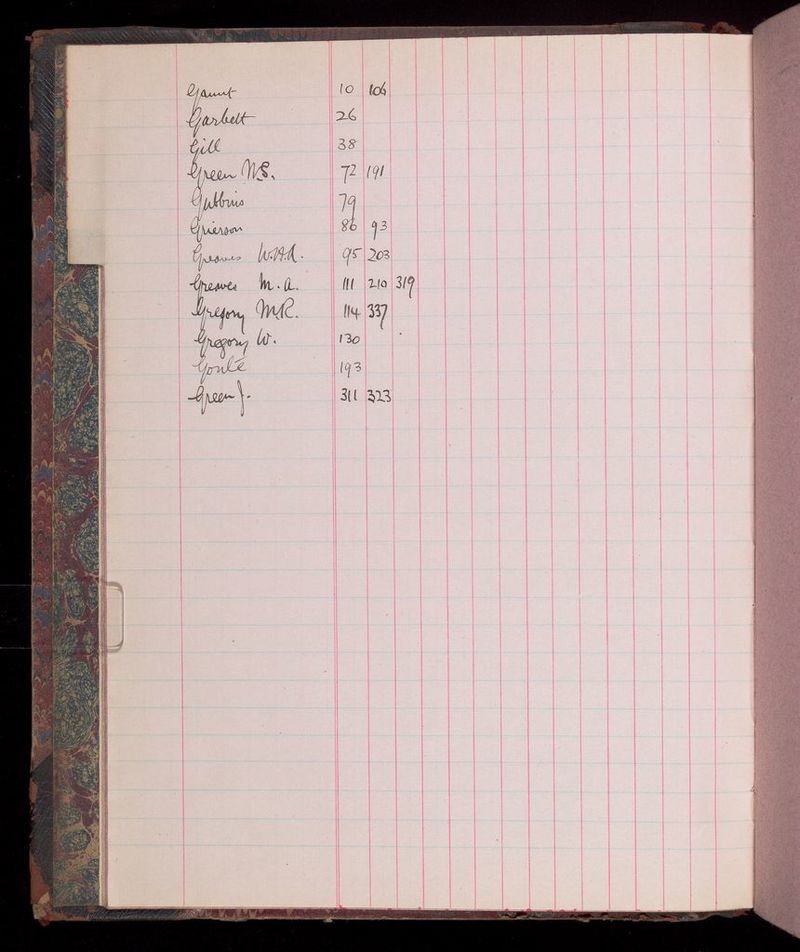 Gaunt 10 106
Garbett 26
Gill 38
Green W.S. 72 191
Gubbins 79
Grierson 86 93
Greaves W.H.A. 95 203
Greaves M.A. 111 210 319
Gregory M.R. 114 337
Gregory W. 130
193
Green J. 311 323